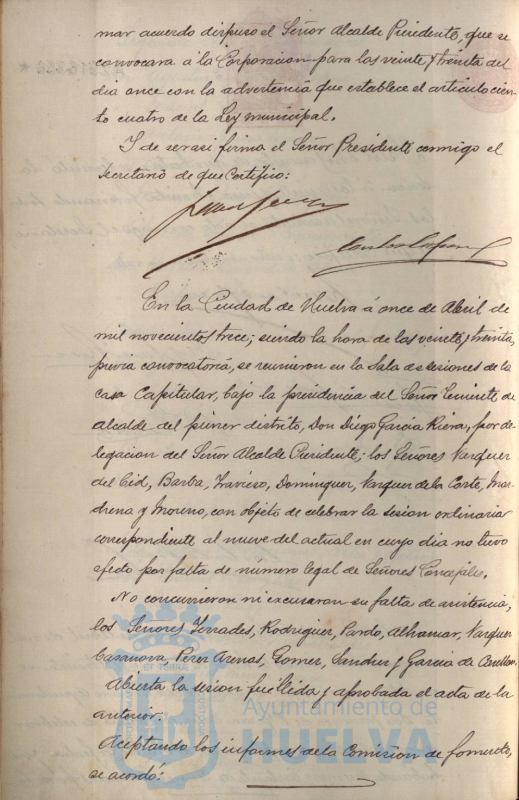 mar acuerdo dispuso el Señor Alcalde Presidente, que se
convocara á la Corporacion para las veinte y treinta del
dia once con la advertencia que establece el articulo cien-
to cuatro de la Ley municipal.
Y de ser asi firma el Señor Presidente conmigo el
Secretario de que Certifico:
En la Ciudad de Huelva á once de Abril de
mil novecientos trece; siendo la hora de las veinte y treinta,
previa convocatoria, se reunieron en la Sala de sesiones de la
casa Capitular, bajo la presidencia del Señor Teniente de
alcalde del primer distrito, Don Diego Garcia Riera, por de-
legacion del Señor Alcalde Presidente; los Señores Vazquez
del Cid, Barba, Travieso, Dominguez, Vazquez de la Corte, Mar-
drena y Moreno, con objeto de celebrar la sesion ordinaria
correspondiente al nueve del actual en cuyo dia no tuvo
efecto por falta de número legal de Señores Concejales.
No concurrieron ni excusaron su falta de asistencia,
los Señores Terrades, Rodriguez, Pardo, Alhamar, Vazquez
Casanova, Perez Arenas, Gomez, Sanchez y Garcia de
Abierta la sesion fué leida y aprobada el acta de la
anterior.
Aceptando los informes de la Comision de fomento,
se acordó:
Ayuntamiento de
HUELVA